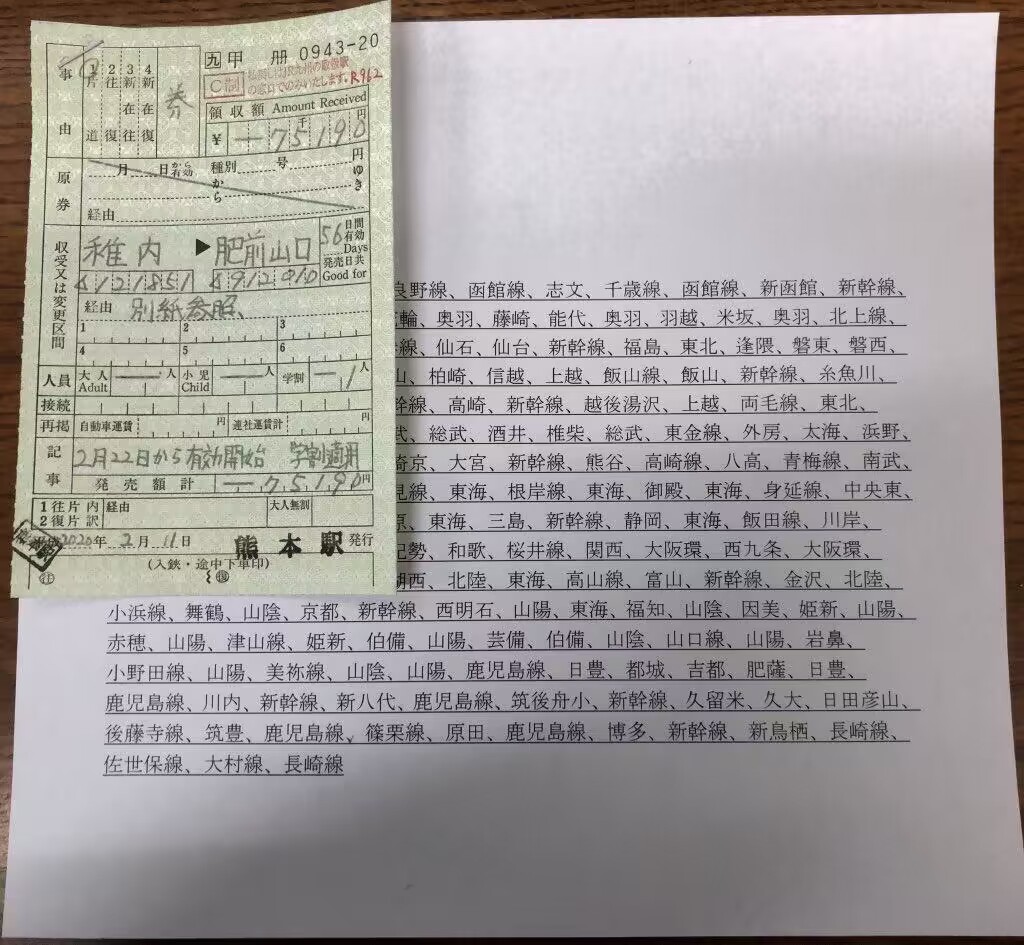 九 甲 册 0943-20
C制
の窓口でのみいたします。R962
事由
1片道
2往復
3新在往
4新在復
券
領収額 Amount Received
¥ 75190円
原券
月 日から有効 種別 号 円
から ゆき
経由
収受又は変更区間
稚内 ▶ 肥前山口
56日間有効 Days
発売日共 Good for
経由 別紙参照、
1 2 3
4 5 6
人員 大人 Adult 人 小児 Child 人 学割 1人
接続
再掲 自動車運賃 円 連社運賃計 円
記事 2月22日から有効開始 学割適用
発売額計 75190円
1往片 内 経由 大人無割
2復片 訳
2020年 2月 11日 熊本駅 発行
(入鋏・途中下車印)
良野線、函館線、志文、千歳線、函館線、新函館、新幹線、
輪、奥羽、藤崎、能代、奥羽、羽越、米坂、奥羽、北上線、
線、仙石、仙台、新幹線、福島、東北、逢隈、磐東、磐西、
山、柏崎、信越、上越、飯山線、飯山、新幹線、糸魚川、
幹線、高崎、新幹線、越後湯沢、上越、両毛線、東北、
武、総武、酒井、椎柴、総武、東金線、外房、太海、浜野、
埼京、大宮、新幹線、熊谷、高崎線、八高、青梅線、南武、
見線、東海、根岸線、東海、御殿、東海、身延線、中央東、
原、東海、三島、新幹線、静岡、東海、飯田線、川岸、
紀勢、和歌、桜井線、関西、大阪環、西九条、大阪環、
湖西、北陸、東海、高山線、富山、新幹線、金沢、北陸、
小浜線、舞鶴、山陰、京都、新幹線、西明石、山陽、東海、福知、山陰、因美、姫新、山陽、
赤穂、山陽、津山線、姫新、伯備、山陽、芸備、伯備、山陰、山口線、山陽、岩鼻、
小野田線、山陽、美祢線、山陰、山陽、鹿児島線、日豊、都城、吉都、肥薩、日豊、
鹿児島線、川内、新幹線、新八代、鹿児島線、筑後舟小、新幹線、久留米、久大、日田彦山、
後藤寺線、筑豊、鹿児島線、篠栗線、原田、鹿児島線、博多、新幹線、新鳥栖、長崎線、
佐世保線、大村線、長崎線